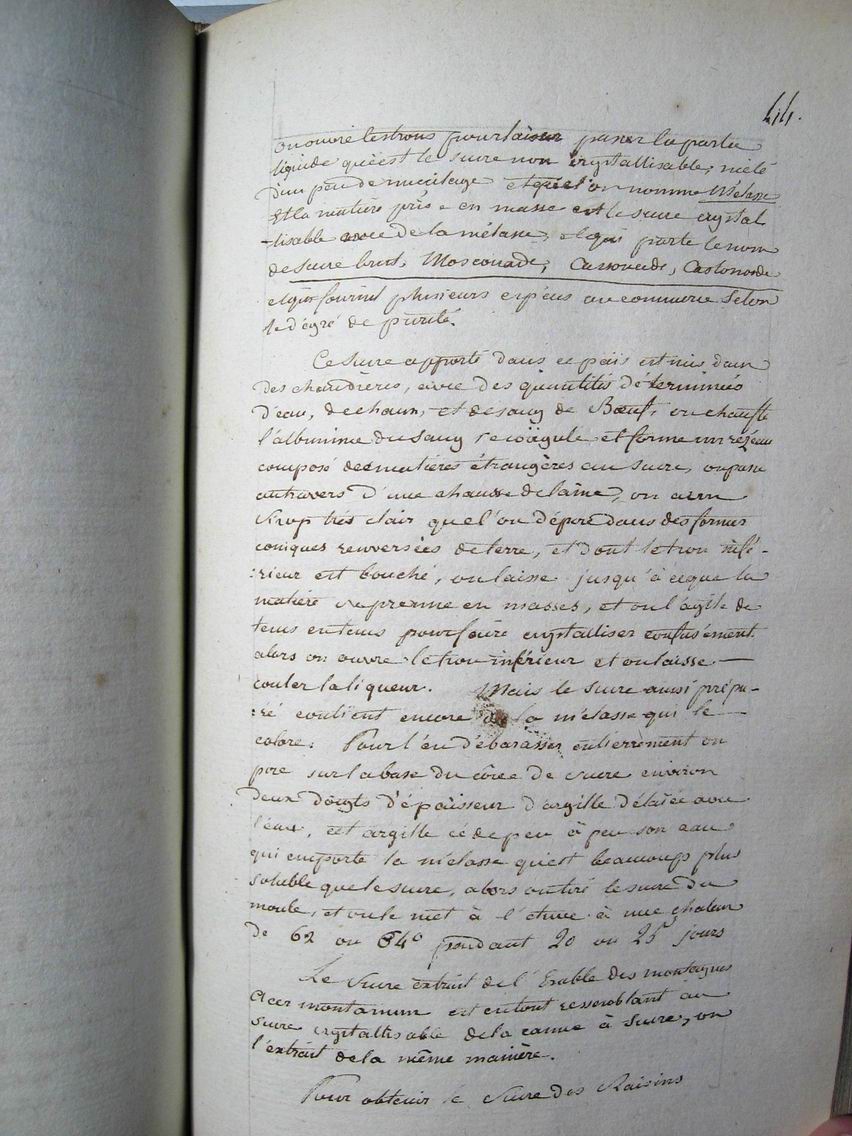 44.
on ouvre les trous pour laisser passer la partie
liquide qui est le sucre non crystallisable, mélé
d'un peu de mucilage et que l'on nomme Mélasse
et la matière prise en masse est le sucre crystal
-lisable avec de la mélasse, et qui porte le nom
de Sucre brut, Moscouade, Cassonade, Castonade
et qui fournit plusieurs espèces au commerce selon
le dégré de pureté.
Ce sucre apporté dans ce païs est mis dans
des chaudières, avec des quantités déterminées
d'eau, de chaux, et de sang de Bœuf, on chauffe
l'albumine du sang se coägule et forme un rézeau
composé des matières étrangères au sucre, on passe
au travers d'une chausse de laine, on a un
sirop très clair que l'on dépose dans des formes
coniques renversées de terre, et dont le trou infé-
:rieur est bouché, on laisse jusqu'à ce que la
matière se prenne en masses, et on l'agite de
tems en tems pour faire crystalliser confusément
alors on ouvre le trou inférieur et on laisse
couler la liqueur. Mais le sucre aussi prépa-
:ré contient encore de la mélasse qui le
colore: Pour l'en débarasser entierrement on
pose sur la base du cône de sucre environ
deux doigts d'épaisseur d'argille délaiée avec
l'eau, cet argille cède peu à peu son eau
qui emporte la mélasse qui est beaucoup plus
soluble que le sucre, alors on tire le sucre du
moule, et on le met à l'étuve à une chaleur
de 62 ou 64° pendant 20 ou 25 jours
Le Sucre extrait de l'Erable des montagnes
Acer montanum est en tout ressemblant au
sucre crystallisable de la canne à sucre, on
l'extrait de la même manière.
Pour obtenir le Sucre des Raisins